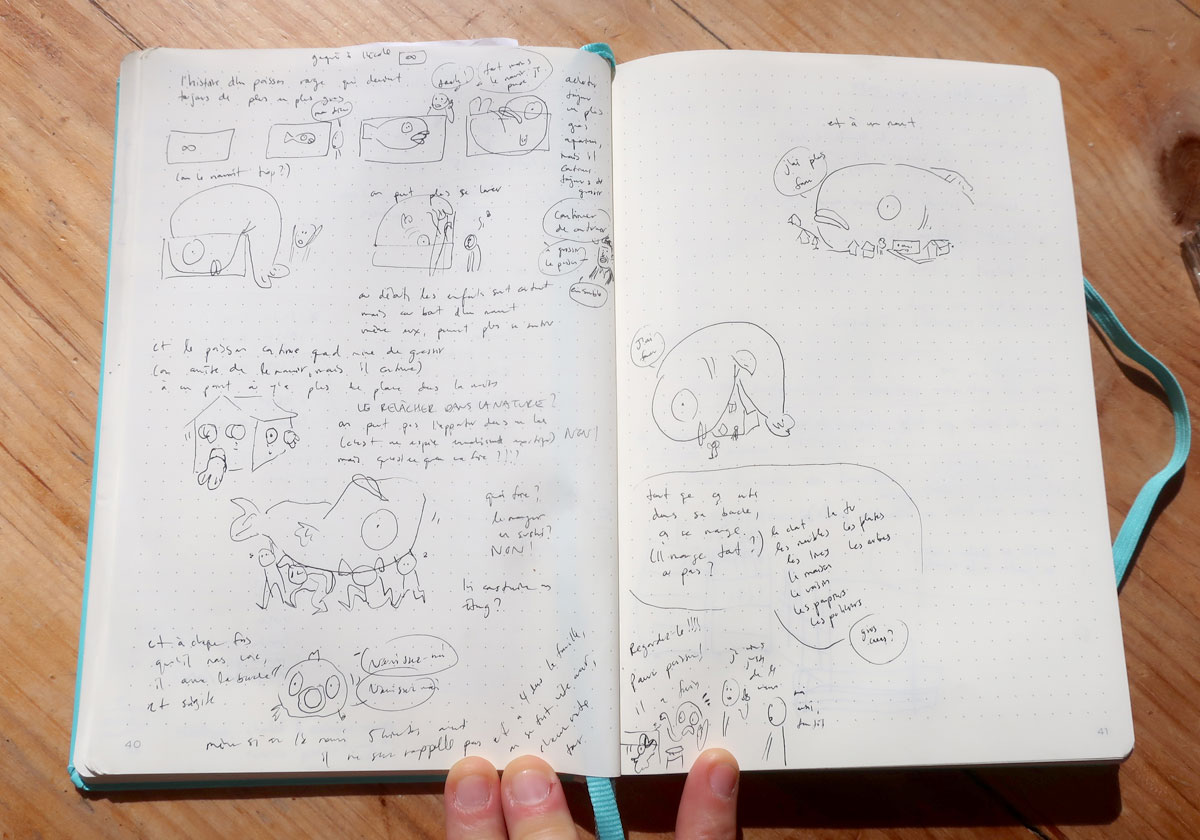 gagné à l'école
l'histoire d'un poisson rouge qui devient
toujours de plus en plus gros
mon dieu
faut moins
le nourrir je
pense
acheter
toujours
un plus
gros
aquarium,
mais il
continue
toujours de
grossir
(on le nourrit trop?)
on peut plus se laver
continuer
de continuer
à grossir
le poisson
ensemble
au début les enfants sont content
mais au bout d'un moment
même eux, peuvent plus
et le poisson continue quand même de grossir
(on arrête de le nourrir, mais il continue)
à un point, y a plus de place dans la maison
LE RELÂCHER DANS LA NATURE?
on peut pas l'apporter dans un lac
(c'est une espèce) NON!
mais, qu'est-ce que on va faire?!??
quoi faire?
le manger
en sushi?
NON!
lui construire un
étang?
et à chaque fois
qu'il nous voit,
il ouvre la bouche
et s'agite
Nourissez-moi
Nourissez-moi
même si on l'a nourri 5 minutes avant
il ne s'en rappelle pas
et à 4 sur la famille,
on se fait vite avoir,
chacun notre
tour.
40
et à un moment
j'ai plus
faim
j'ai
faim
tout ce qu'on met
dans sa bouche,
ça se mange
(Il mange tout?)
ou pas?
le chat la tv
les meubles les plantes
les livres les arbres
la maison
le voisin
les papiers
les policiers
gros
caca?
Regardez-le!!!!
Pauvre poisson!
il a faim
moi
aussi,
41